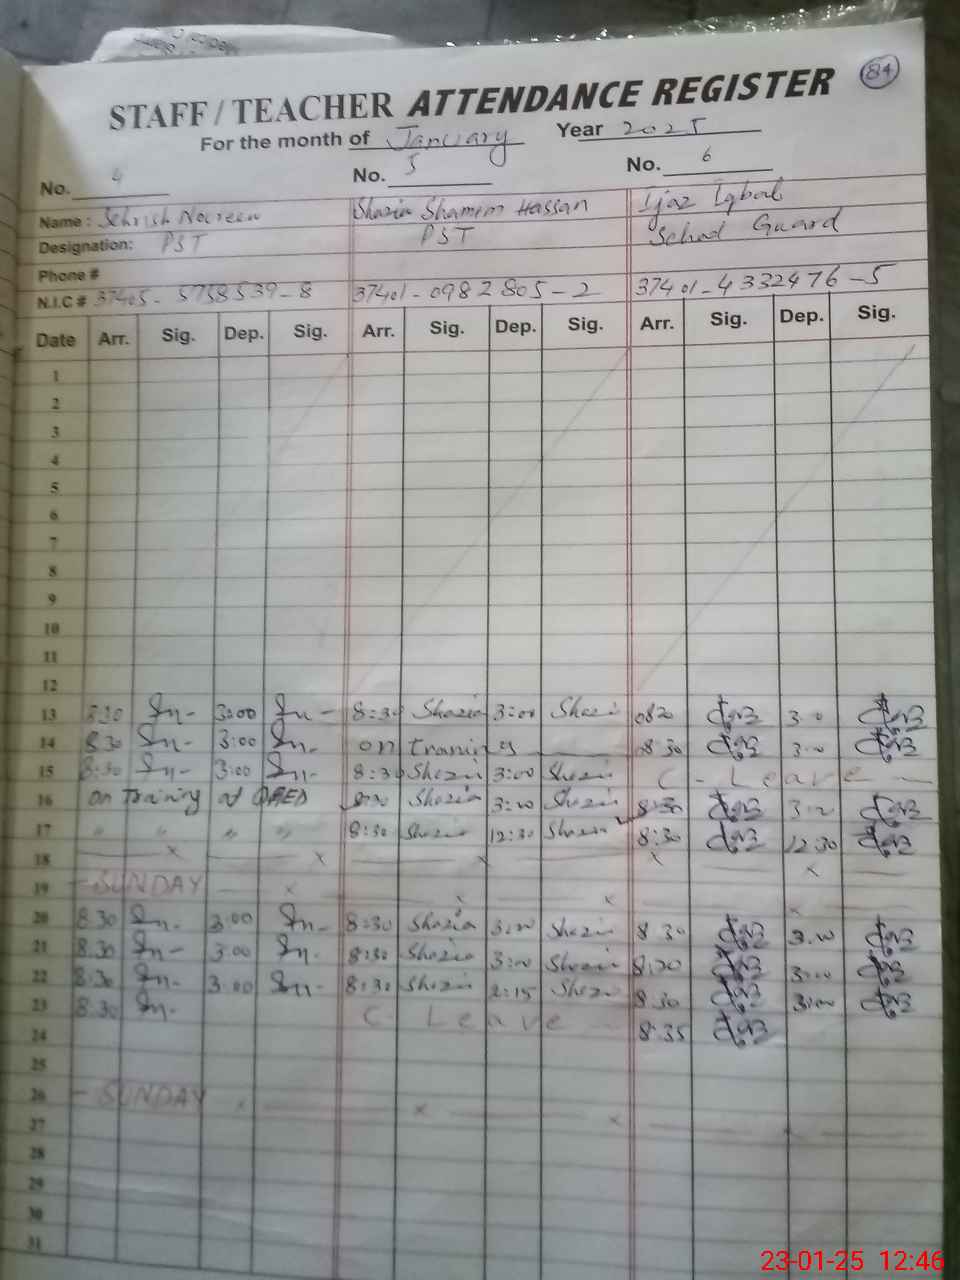 84
STAFF / TEACHER ATTENDANCE REGISTER
For the month of January Year 2025
No. 4 No. 5 No. 6
Name : Sehrish Noureen Shazia Shamim Hassan Ijaz Iqbal
Designation: PST PST School Guard
Phone #
N.I.C # 37405-5758539-8 37401-0982805-2 37401-4332476-5
Date Arr. Sig. Dep. Sig. Arr. Sig. Dep. Sig. Arr. Sig. Dep. Sig.
1
2
3
4
5
6
7
8
9
10
11
12
13 8:30 Sn- 3:00 Sn- 8:30 Shazia 3:00 Shazia 0830 3.0
14 8:30 Sn- 3:00 Sn- on training 8:30 3:00
15 8:30 Sn- 3:00 Sn- 8:30 Shazia 3:00 Shazia C - Leave
16 on Training at QAED 8:30 Shazia 3:00 Shazia 8:30 3:00
17 " " " " 8:30 Shazia 12:30 Shazia 8:30 12:30
18
19 - SUNDAY
20 8:30 Sn- 3:00 Sn- 8:30 Shazia 3:00 Shazia 8:30 3:00
21 8:30 Sn- 3:00 Sn- 8:30 Shazia 3:00 Shazia 8:30 3:00
22 8:30 Sn- 3:00 Sn- 8:30 Shazia 2:15 Shazia 8:30 3:00
23 8:30 Sn- C Leave 8:35
24
25
26 - SUNDAY
27
28
29
30
31
23-01-25 12:46